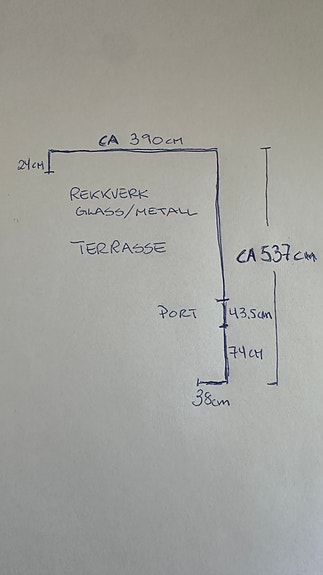 CA 390cm
24cm
REKKVERK
GLASS/METALL
TERRASSE
CA 537cm
PORT
43,5cm
74cm
38cm